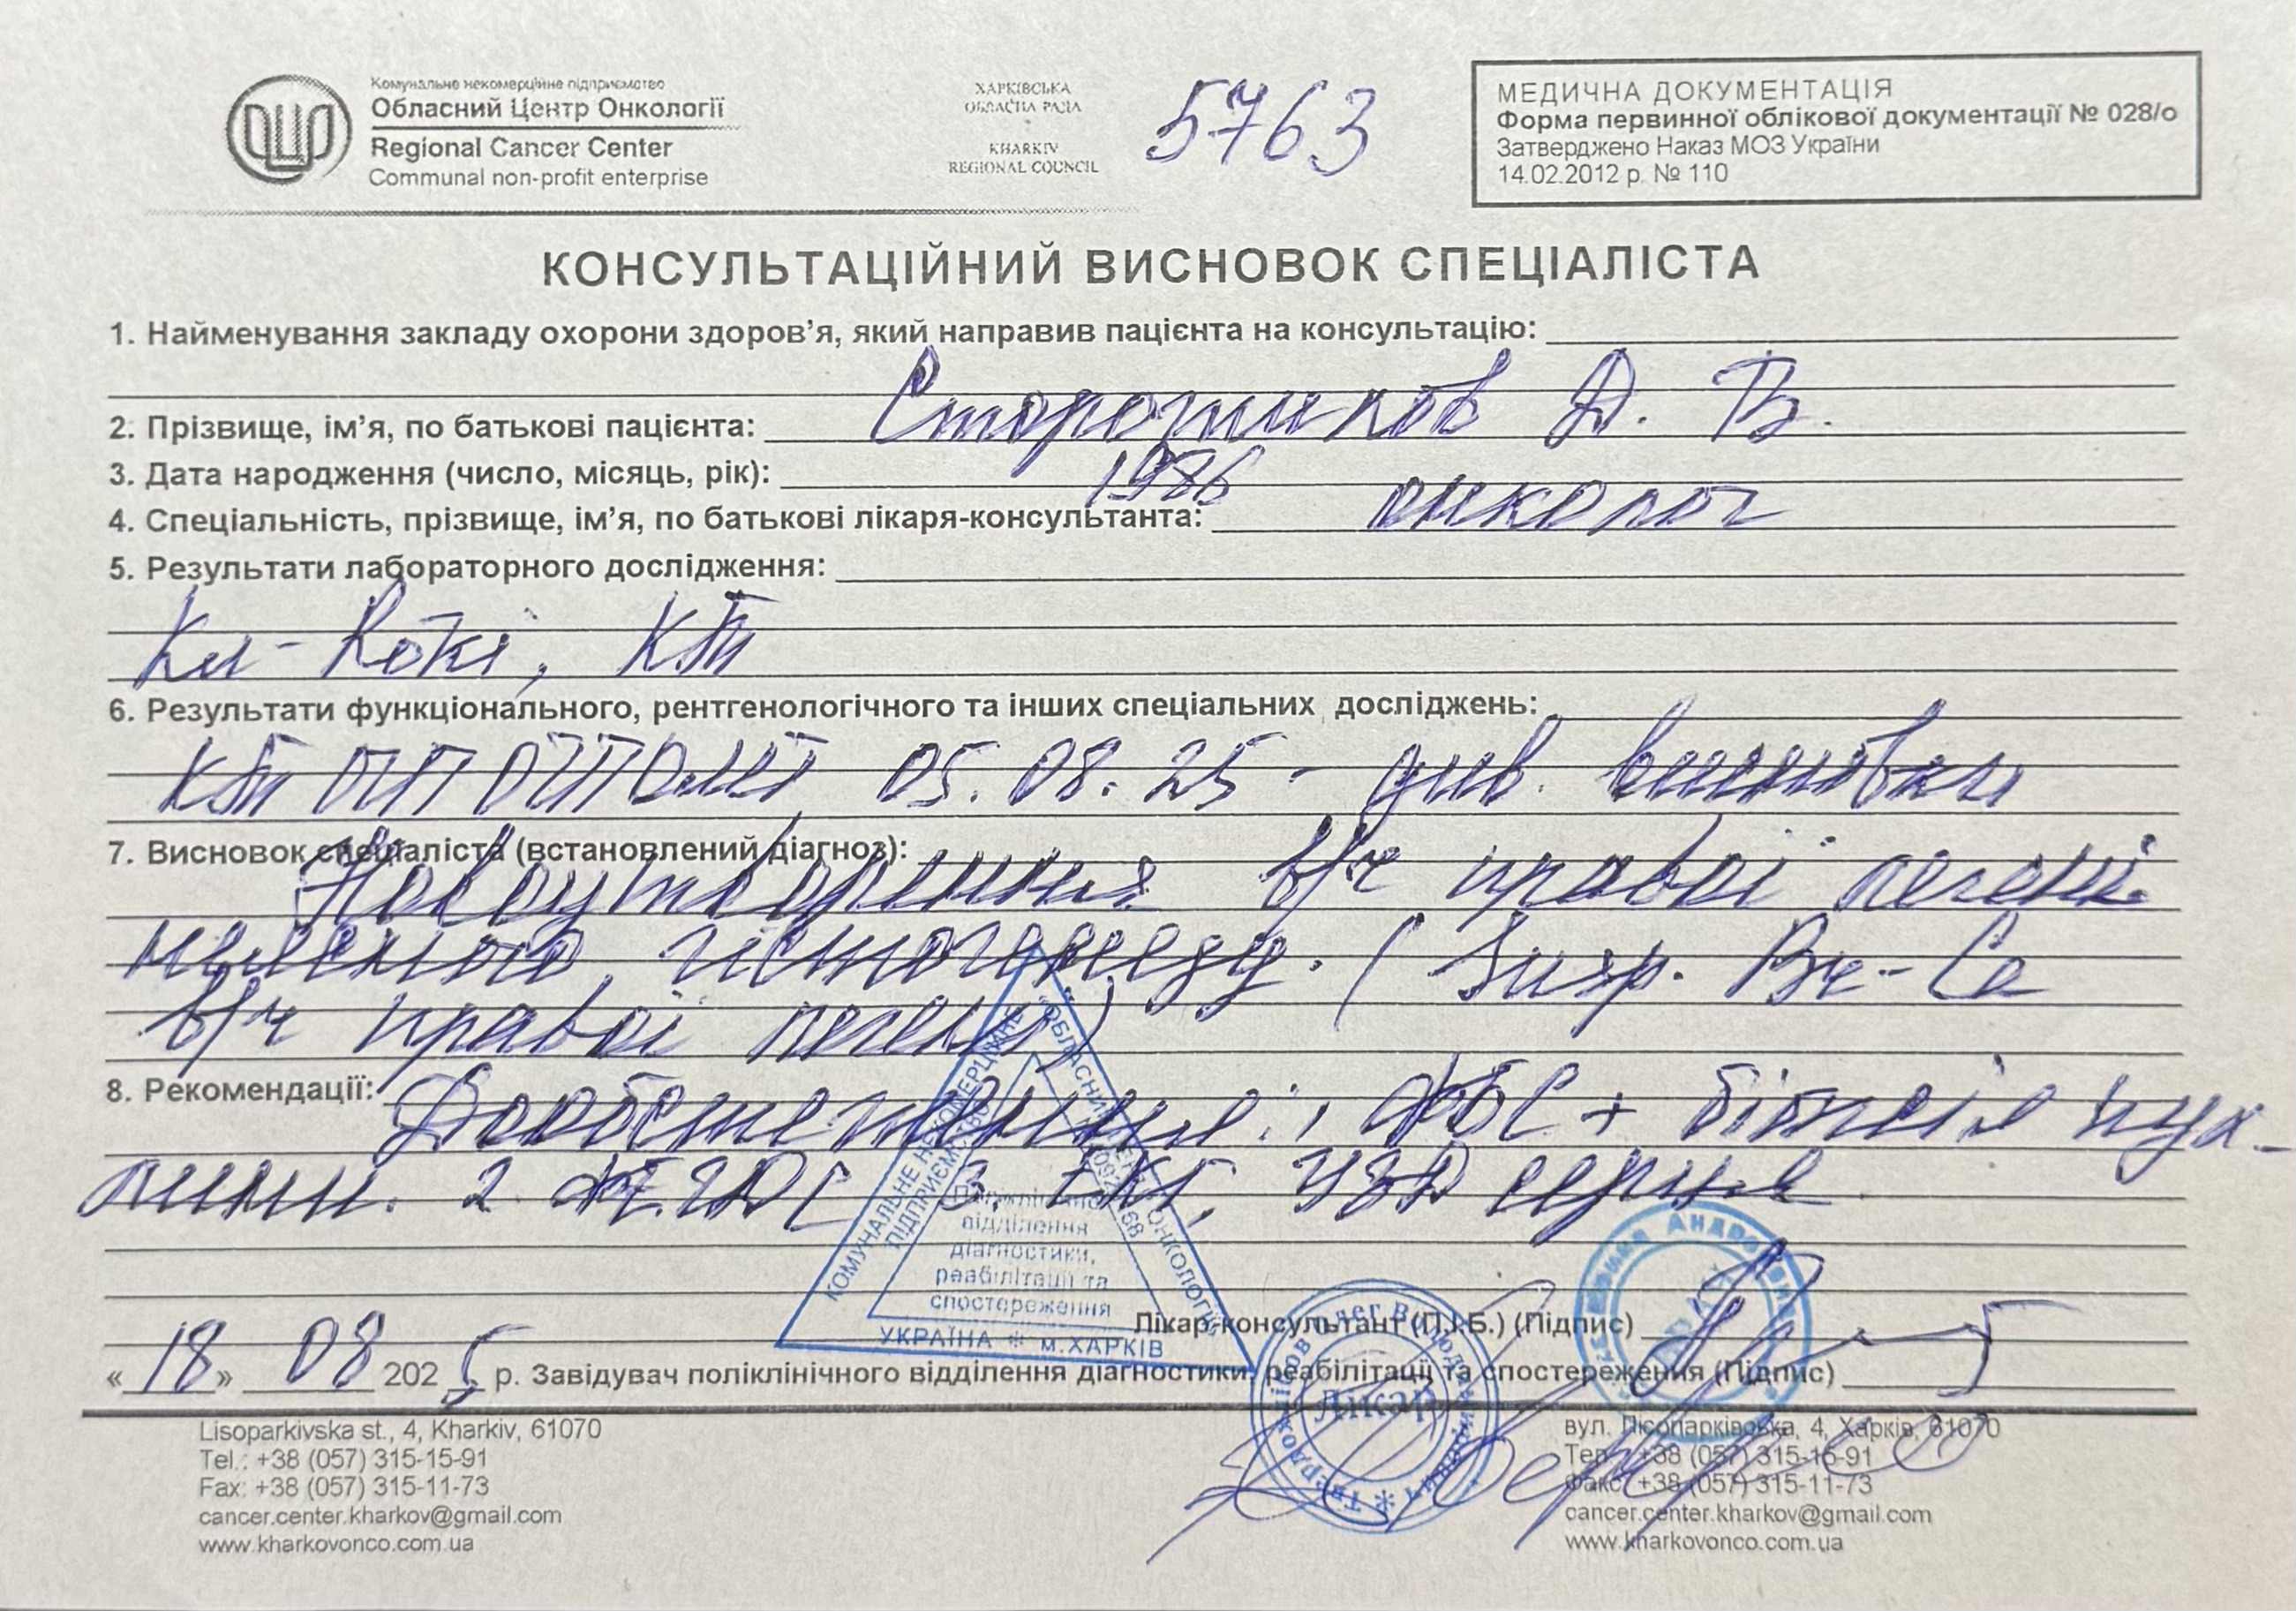 Комунальне некомерційне підприємство
Обласний Центр Онкології
Regional Cancer Center
Communal non-profit enterprise
ХАРКІВСЬКА
ОБЛАСНА РАДА
KHARKIV
REGIONAL COUNCIL
5763
МЕДИЧНА ДОКУМЕНТАЦІЯ
Форма первинної облікової документації № 028/о
Затверджено Наказ МОЗ України
14.02.2012 р. № 110
КОНСУЛЬТАЦІЙНИЙ ВИСНОВОК СПЕЦІАЛІСТА
1. Найменування закладу охорони здоров’я, який направив пацієнта на консультацію:
2. Прізвище, ім’я, по батькові пацієнта: Д. В.
3. Дата народження (число, місяць, рік): 1986
4. Спеціальність, прізвище, ім’я, по батькові лікаря-консультанта: онколог
5. Результати лабораторного дослідження:
КТ
6. Результати функціонального, рентгенологічного та інших спеціальних досліджень:
КТ ОГП ОЧП ОМТ 05.08.25 - див. висновки
7. Висновок спеціаліста (встановлений діагноз):
Новоутворення в/ч правої легені
неясного гістогенезу. ( Susp. Bl-Ca
в/ч правої легені)
8. Рекомендації: Дообстеження: 1 ФБС + біопсія пух-
лини. 2. ФЕГДС 3. ЕКГ, УЗД серця
КОМУНАЛЬНЕ НЕКОМЕРЦІЙНЕ ПІДПРИЄМСТВО
ОБЛАСНИЙ ЦЕНТР ОНКОЛОГІЇ
Поліклінічне
відділення
діагностики,
реабілітації та
спостереження
УКРАЇНА * м.ХАРКІВ
Лікар-консультант (П.І.Б.) (Підпис)
«18» 08 2025 р. Завідувач поліклінічного відділення діагностики, реабілітації та спостереження (Підпис)
Лікар
Lisoparkivska st., 4, Kharkiv, 61070
Tel.: +38 (057) 315-15-91
Fax: +38 (057) 315-11-73
cancer.center.kharkov@gmail.com
www.kharkovonco.com.ua
вул. Лісопарківська, 4, Харків, 61070
Тел.: +38 (057) 315-15-91
Факс: +38 (057) 315-11-73
cancer.center.kharkov@gmail.com
www.kharkovonco.com.ua